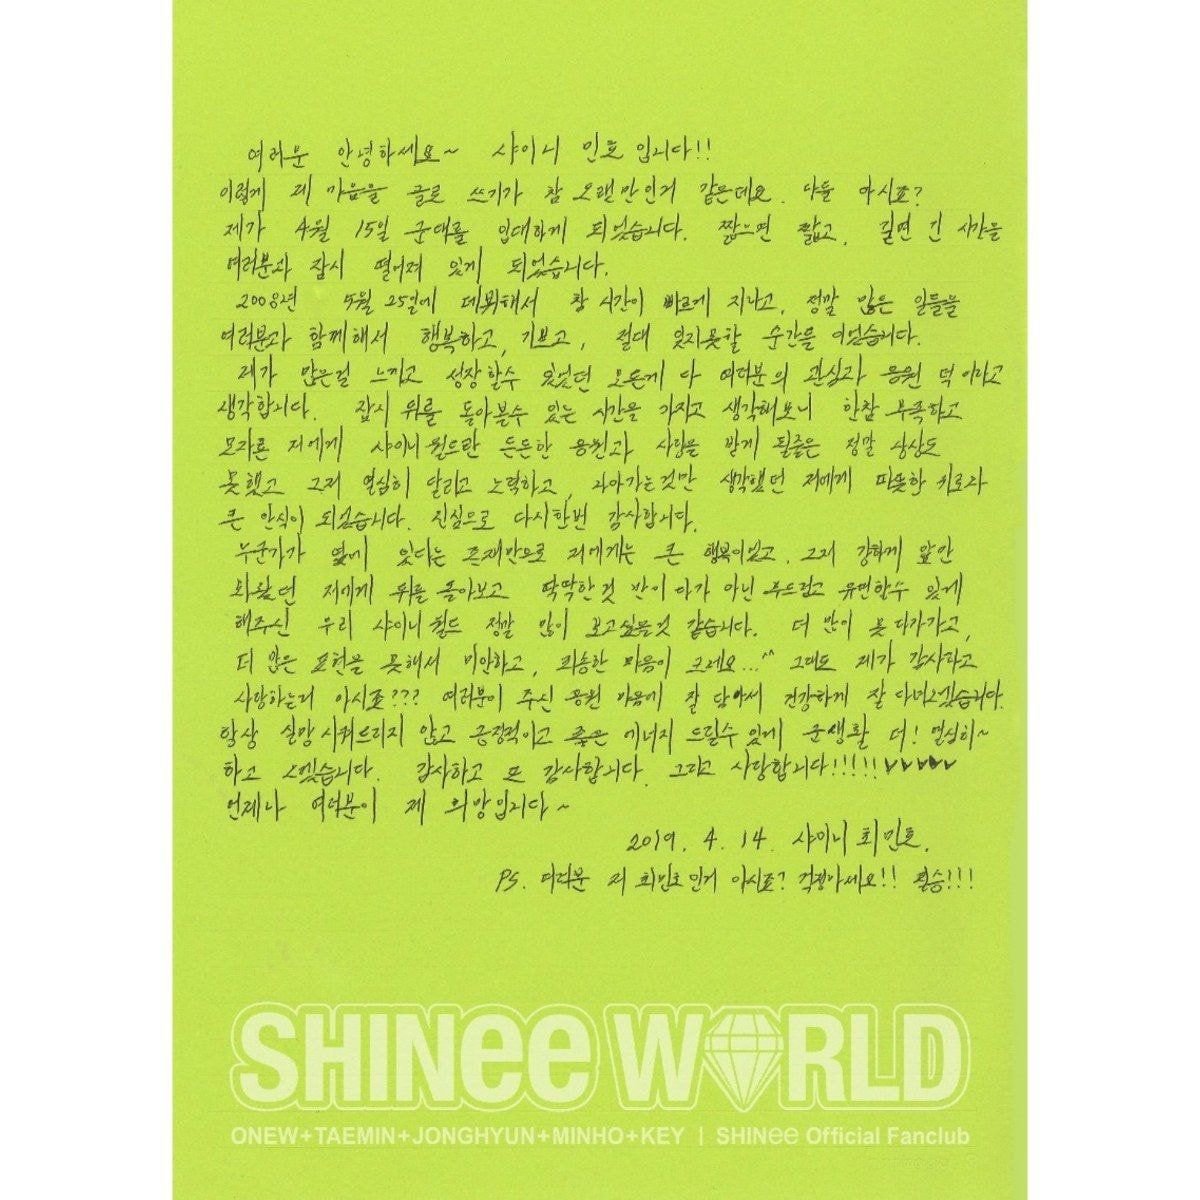 여러분 안녕하세요~ 샤이니 민호 입니다!!
이렇게 제 마음을 글로 쓰기가 참 오랜만인거 같은데요. 다들 아시죠?
제가 4월 15일 군대를 입대하게 되었습니다. 짧으면 짧고, 길면 긴 시간을
여러분과 잠시 떨어져 있게 되었습니다.
2008년 5월 25일에 데뷔해서 참 시간이 빠르게 지나고, 정말 많은 일들을
여러분과 함께해서 행복하고, 기쁘고, 절대 잊지못할 순간들 이었습니다.
제가 많은걸 느끼고 성장할수 있었던 모든게 다 여러분의 관심과 응원 덕이라고
생각합니다. 잠시 뒤를 돌아볼수 있는 시간을 가지고 생각해보니 한참 부족하고
모자른 저에게 샤이니월드란 든든한 응원과 사랑을 받게 될줄은 정말 상상도
못했고 그저 열심히 달리고 노력하고, 나아가는것만 생각했던 저에게 따뜻한 위로와
큰 안식이 되었습니다. 진심으로 다시한번 감사합니다.
누군가가 옆에 있다는 존재만으로 저에게는 큰 행복이었고, 그저 강하게 앞만
봐왔던 저에게 뒤를 돌아보고 딱딱한것 만이 다가 아닌 부드럽고 유연할수 있게
해주신 우리 샤이니월드 정말 많이 보고싶을것 같습니다. 더 많이 못 다가가고,
더 많은 표현을 못해서 미안하고, 죄송한 마음이 크네요...^^ 그래도 제가 감사하고
사랑하는거 아시죠??? 여러분이 주신 응원 마음에 잘 담아서 건강하게 잘 다녀오겠습니다.
항상 실망시켜드리지 않고 긍정적이고 좋은 에너지 드릴수 있게 군생활 더! 열심히~
하고 오겠습니다. 감사하고 또 감사합니다. 그리고 사랑합니다!!!!!! ♥♥♥♥♥
언제나 여러분이 제 희망입니다~
2019. 4. 14. 샤이니 최민호.
PS. 여러분 저 최민호인거 아시죠? 걱정마세요!! 필승!!!
SHINee WORLD
ONEW+TAEMIN+JONGHYUN+MINHO+KEY | SHINee Official Fanclub